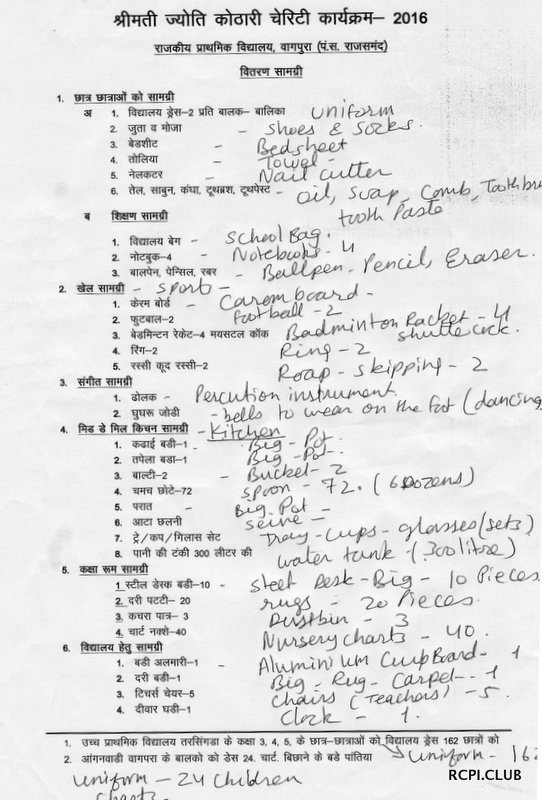 श्रीमती ज्योति कोठारी चेरिटी कार्यक्रम– 2016
राजकीय प्राथमिक विद्यालय, वागपुरा (पं.स. राजसमंद)
वितरण सामग्री
1. छात्र छात्राओं को सामग्री
अ 1. विद्यालय ड्रेस–2 प्रति बालक– बालिका uniform
2. जुता व मोजा – Shoes & Socks.
3. बेडशीट – Bedsheet
4. तोलिया – Towel –
5. नेलकटर – Nail cutter
6. तेल, साबुन, कंघा, टूथब्रश, टूथपेस्ट – oil, Soap, Comb, Toothbru
tooth Paste
ब शिक्षण सामग्री
1. विद्यालय बेग – School Bag.
2. नोटबुक–4 – Notebooks – 4
3. बालपेन, पेन्सिल, रबर – Ballpen, Pencil, Eraser.
2. खेल सामग्री – Sports –
1. केरम बोर्ड – Carom board –
2. फुटबाल–2 football – 2
3. बेडमिन्टन रेकेट–4 मयसटल कॉक Badminton Racket – 4
shuttle cock.
4. रिंग–2 Ring – 2
5. रस्सी कूद रस्सी–2 Roap – skipping – 2
3. संगीत सामग्री
1. ढोलक – Percution instrument.
2. घुघरू जोडी – bells to wear on the foot (dancing
4. मिड डे मिल किचन सामग्री – Kitchen
1. कढाई बडी–1 – Big – Pot.
2. तपेला बडा–1 Big – Pot –
3. बाल्टी–2 – Bucket – 2
4. चमच छोटे–72 Spoon – 72. (6 Dozens)
5. परात – Big – Pot –
6. आटा छलनी seive –
7. ट्रे/कप/गिलास सेट Tray – Cups – glasses (sets)
8. पानी की टंकी 300 लीटर की water tank – (300 litre)
5. कक्षा रूम सामग्री
1 स्टील डेरक बडी–10 – Steel Desk – Big – 10 Pieces
2. दरी पटटी– 20 rugs – 20 Pieces.
3. कचरा पात्र– 3 Dustbin – 3
4. चार्ट नक्शे–40 Nursery charts – 40.
6. विद्यालय हेतु सामग्री
1. बडी अलमारी–1 – Aluminium Cupboard – 1
2. दरी बडी–1 Big – Rug – Carpet – 1
3. टिचर्स चेयर–5 Chairs (Teachers) – 5
4. दीवार घडी–1 Clock – 1.
1. उच्च प्राथमिक विद्यालय तरसिंगडा के कक्षा 3, 4, 5, के छात्र–छात्राओं को विद्यालय ड्रेस 162 छात्रों को
uniform – 16
2. आंगनवाडी वागपरा के बालको को डेस 24. चार्ट. बिछाने के बडे पांतिया
uniform – 24 children
RCPI.CLUB